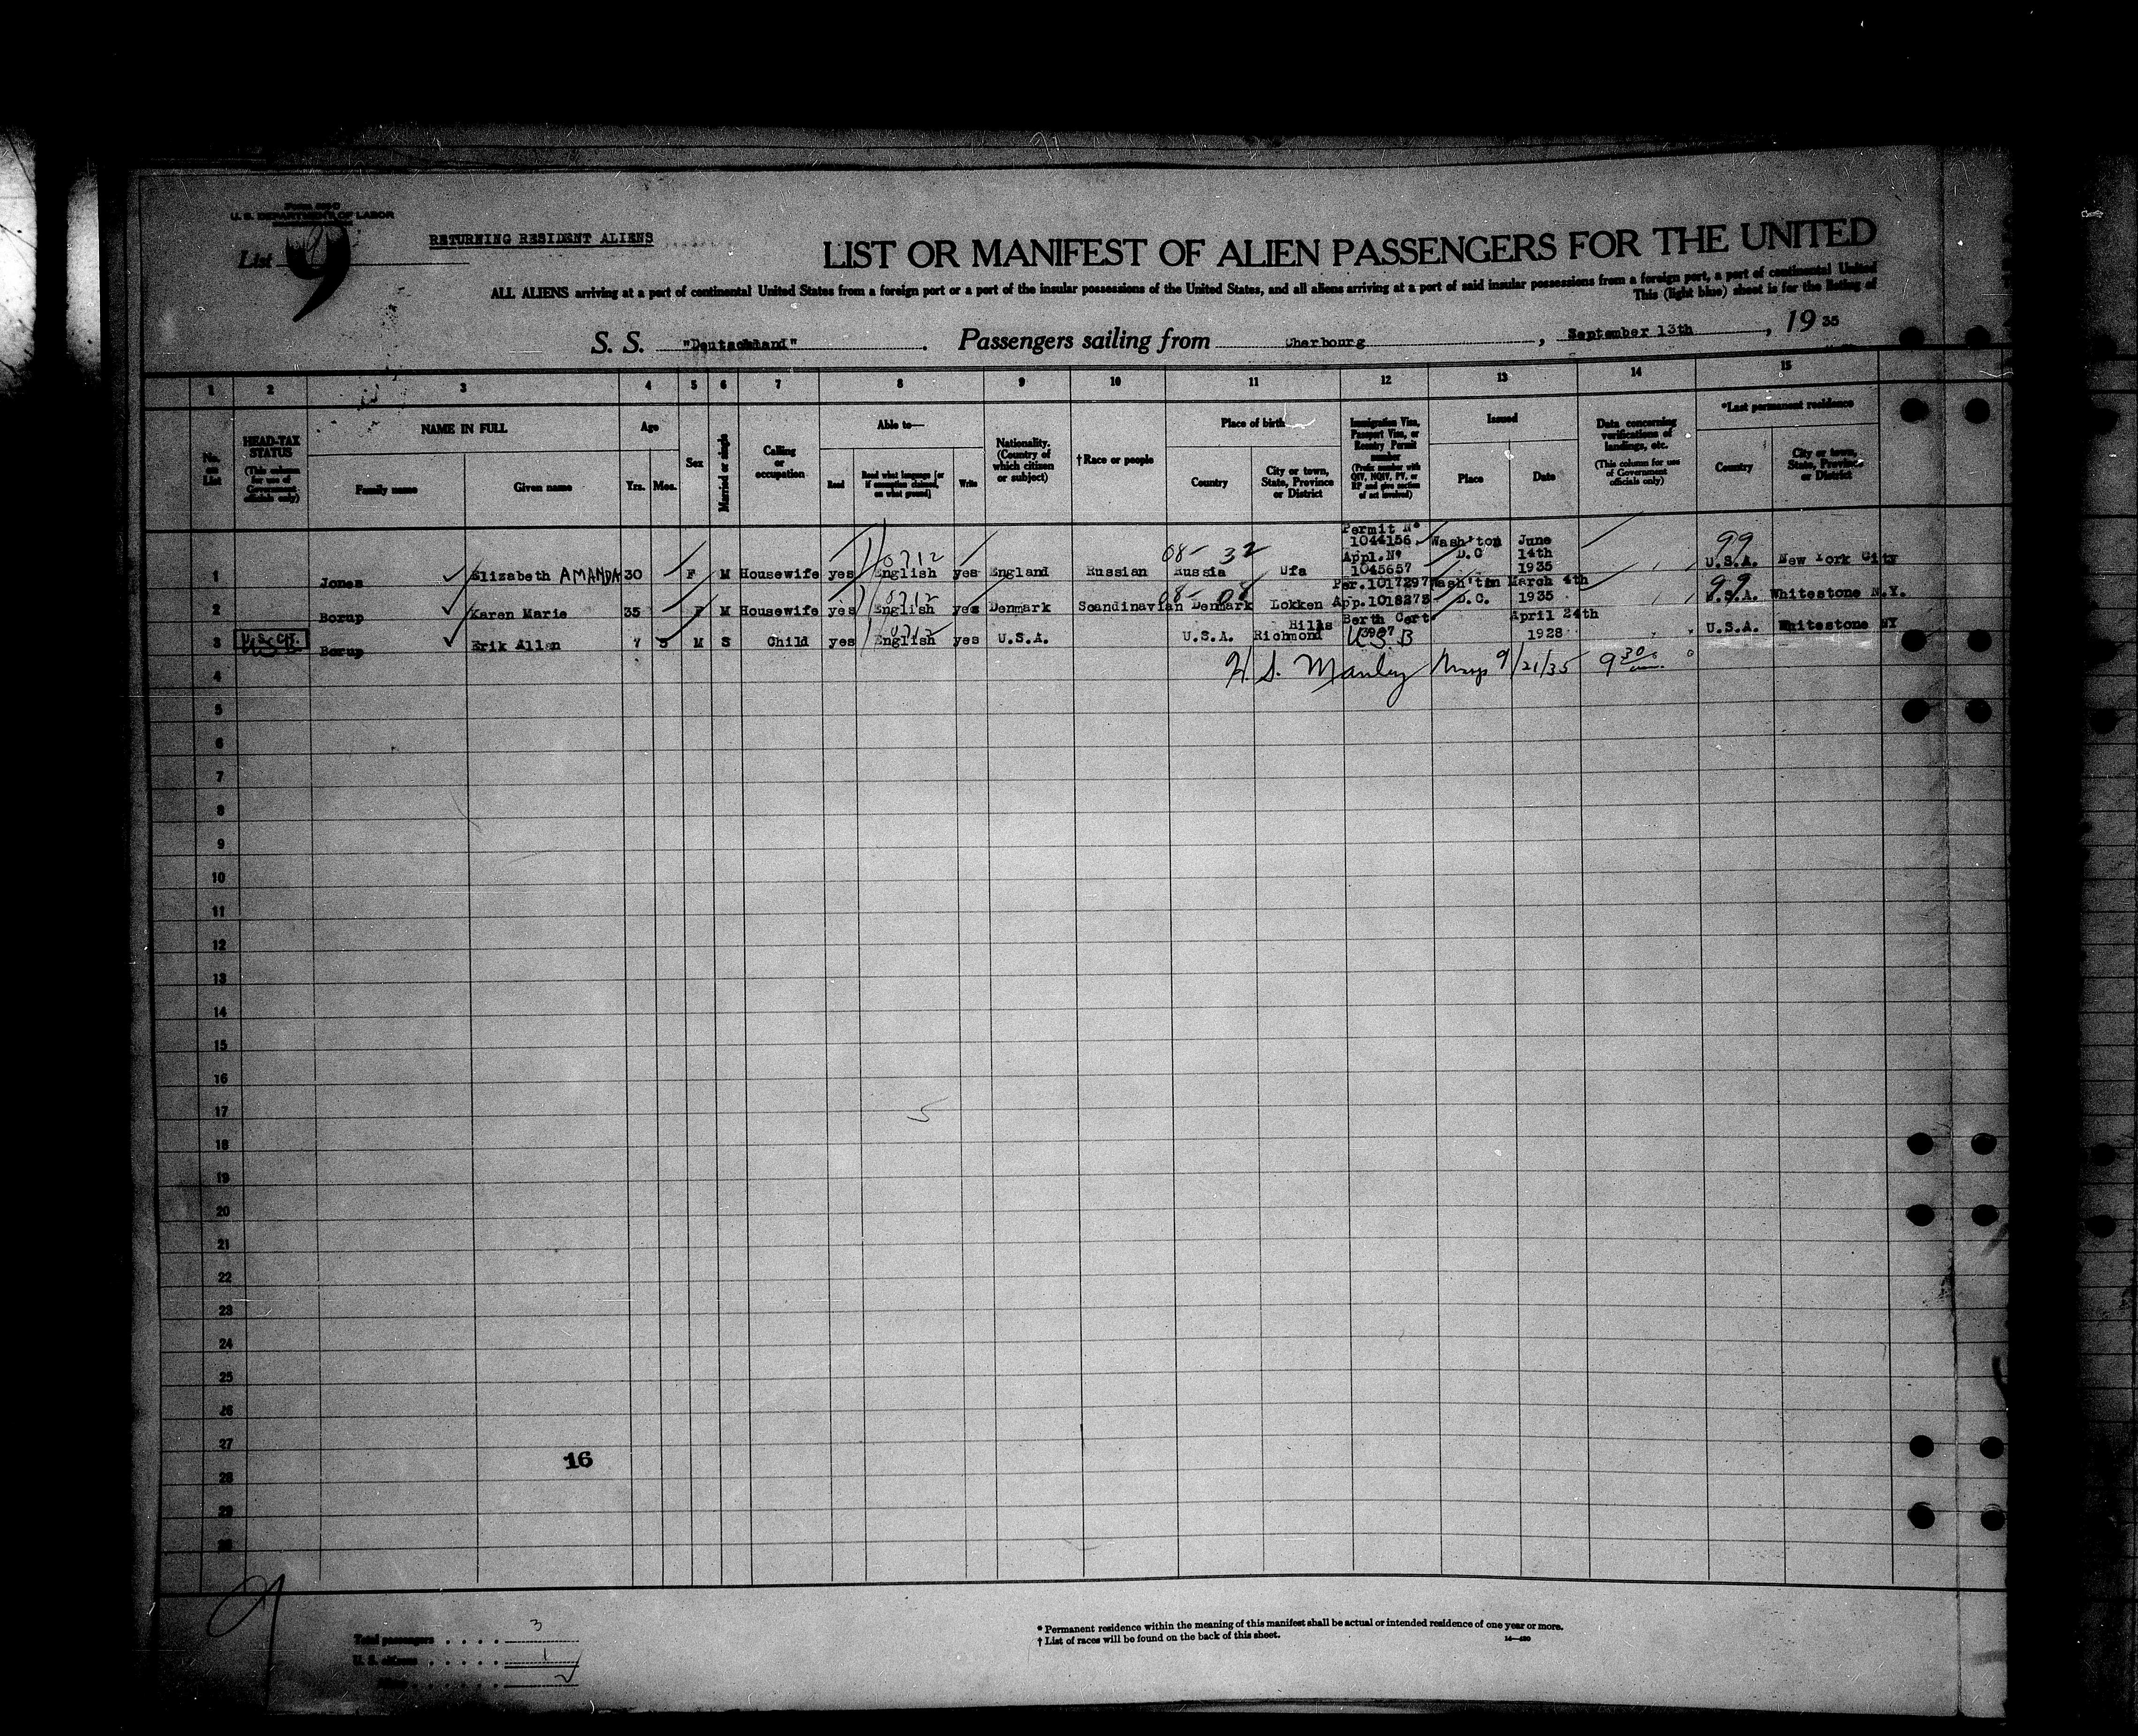 U. S. DEPARTMENT OF LABOR
List 9
RETURNING RESIDENT ALIENS
LIST OR MANIFEST OF ALIEN PASSENGERS FOR THE UNITED
ALL ALIENS arriving at a port of continental United States from a foreign port or a port of the insular possessions of the United States, and all aliens arriving at a port of said insular possessions from a foreign port, a port of continental United
This (light blue) sheet is for the listing of
S. S. "Deutschland". Passengers sailing from Cherbourg, September 13th, 19 35
1 2 3 4 5 6 7 8 9 10 11 12 13 14 15
No. on List
HEAD-TAX STATUS (This column for use of Government officials only)
NAME IN FULL
Family name
Given name
Age
Yrs. Mos.
Sex
Married or single
Calling or occupation
Able to—
Read
Read what language (or if exemption claimed, on what ground)
Write
Nationality. (Country of which citizen or subject)
†Race or people
Place of birth
Country
City or town, State, Province or District
Immigration Visa, Passport Visa, or Reentry Permit number (Prefix number with QIV, NQIV, PV, or RP and give section of act involved)
Issued
Place
Date
Data concerning verifications of landings, etc. (This column for use of Government officials only)
*Last permanent residence
Country
City or town, State, Province or District
1 Jones Elizabeth AMANDA 30 F M Housewife yes English yes England Russian Russia Ufa Permit Nº 1044156 Appl.Nº 1045657 Wash'ton D.C June 14th 1935 U.S.A. New York City
08- 32
99
2 Borup Karen Marie 35 F M Housewife yes English yes Denmark Scandinavian Denmark Lokken Per.1017297 App.1018273 Wash'tin D.C. March 4th 1935 U.S.A. Whitestone N.Y.
08- 08
99
3 U.S. CIT. Borup Erik Allan 7 5 M S Child yes English yes U.S.A. U.S.A. Richmond Hills Berth Cert. 3987 USB April 24th 1928 U.S.A. Whitestone NY
H. S. Manley Insp 9/21/35 9 30
4
5
6
7
8
9
10
11
12
13
14
15
16
17
18
19
20
21
22
23
24
25
26
27
28
29
30
16
Total passengers . . . . 3
U. S. citizens . . . . . 1
* Permanent residence within the meaning of this manifest shall be actual or intended residence of one year or more.
† List of races will be found on the back of this sheet.